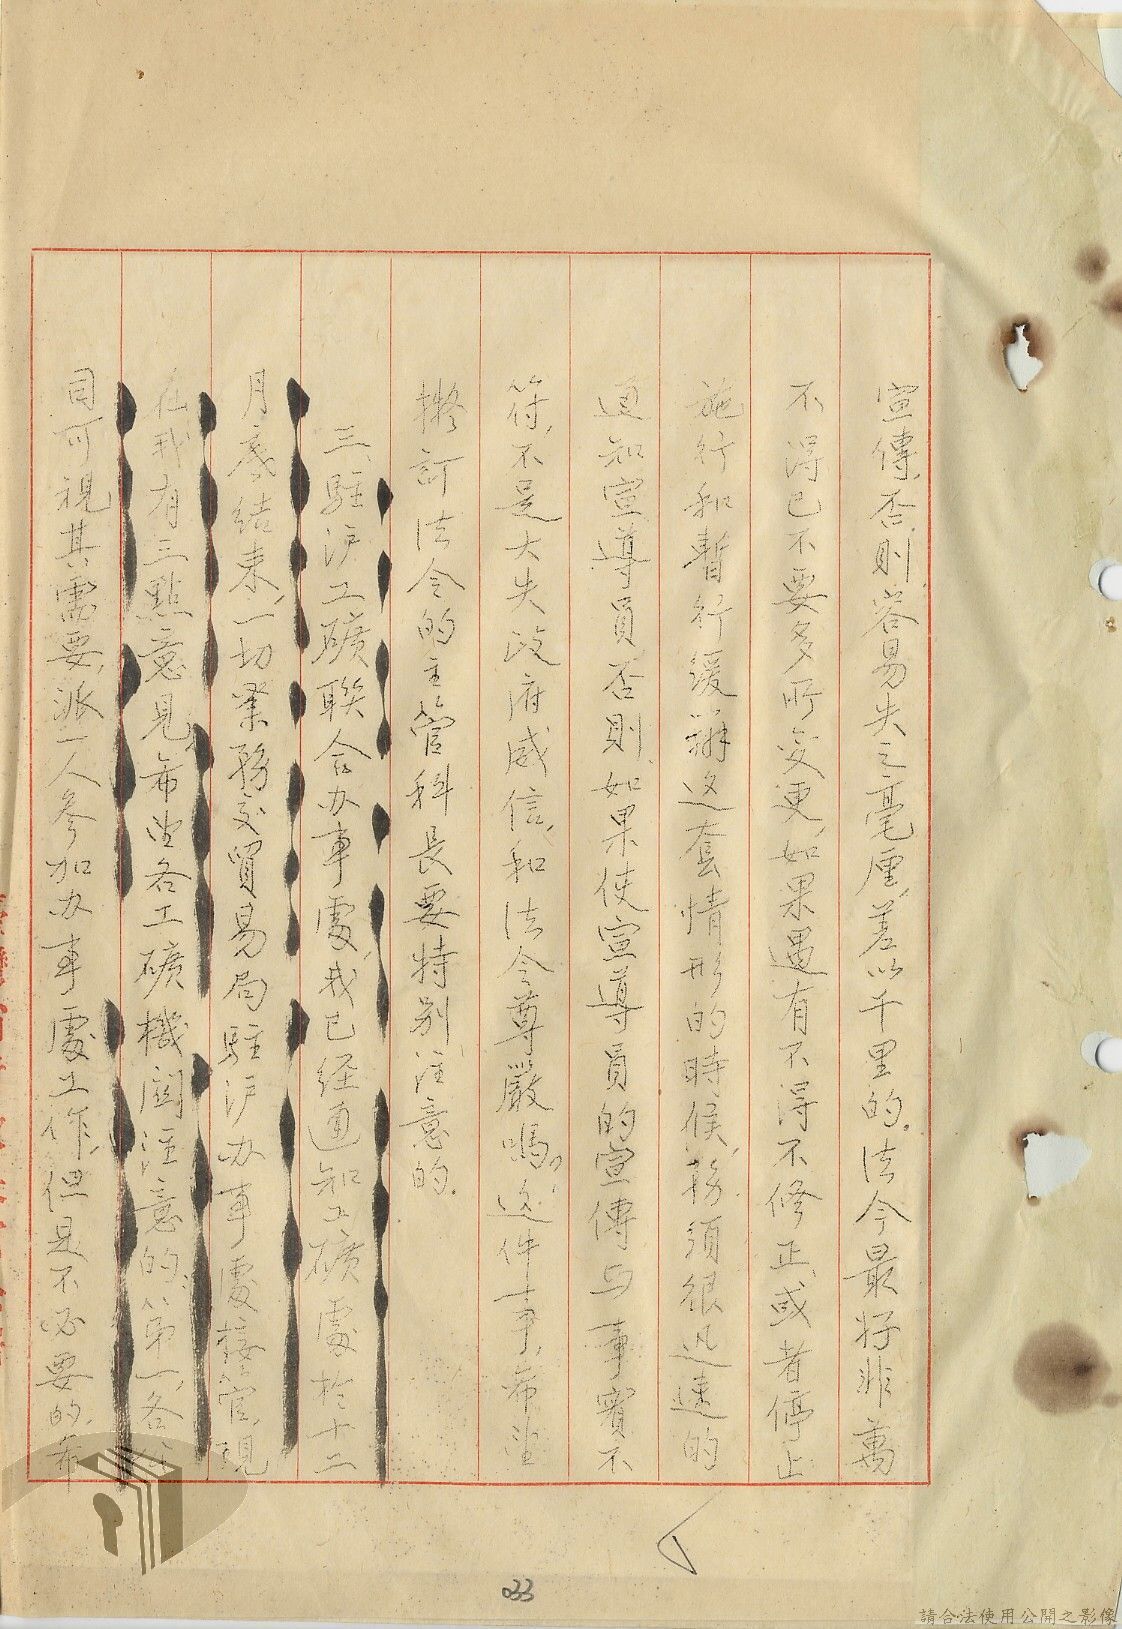 宣傳、否則、容易失之毫厘、差以千里的。法令最好非萬
不得已不要多所变更、如果遇有不得不修正、或者停止
施行和暫行緩辦这套情形的時候、務須很迅速的
通知宣導員、否則、如果使宣導員的宣傳与事實不
符、不是大失政府威信、和法令尊嚴嗎？这件事、希望
擬訂法令的主管科長要特別注意的。
三、駐沪工礦联合办事處、我已经通知工礦處於十二
月底結束、一切業務交貿易局駐沪办事處接管、現
在我有三點意見、希望各工礦機関注意的：第一、各公
司可視其需要、派一人參加办事處工作、但是不必要的、希
033
請合法使用公開之影像